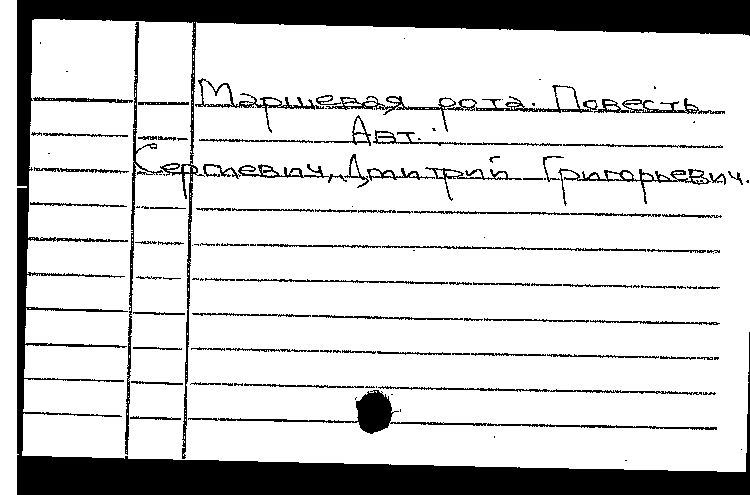 Маршевая рота. Повесть
Авт.:
Сергиевич, Дмитрий Григорьевич.